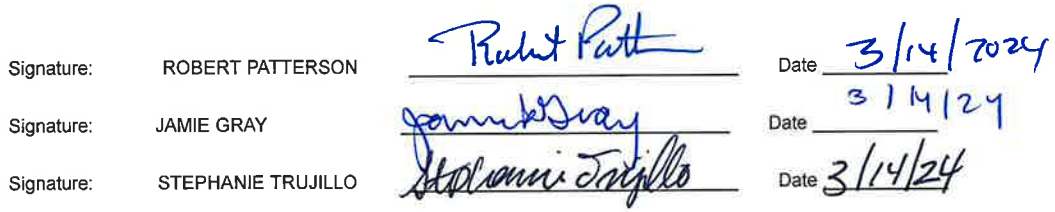 Signature: ROBERT PATTERSON Robert Patt Date 3/14/2024
Signature: JAMIE GRAY Jamie Gray Date 3/14/24
Signature: STEPHANIE TRUJILLO Stephanie Trujillo Date 3/14/24